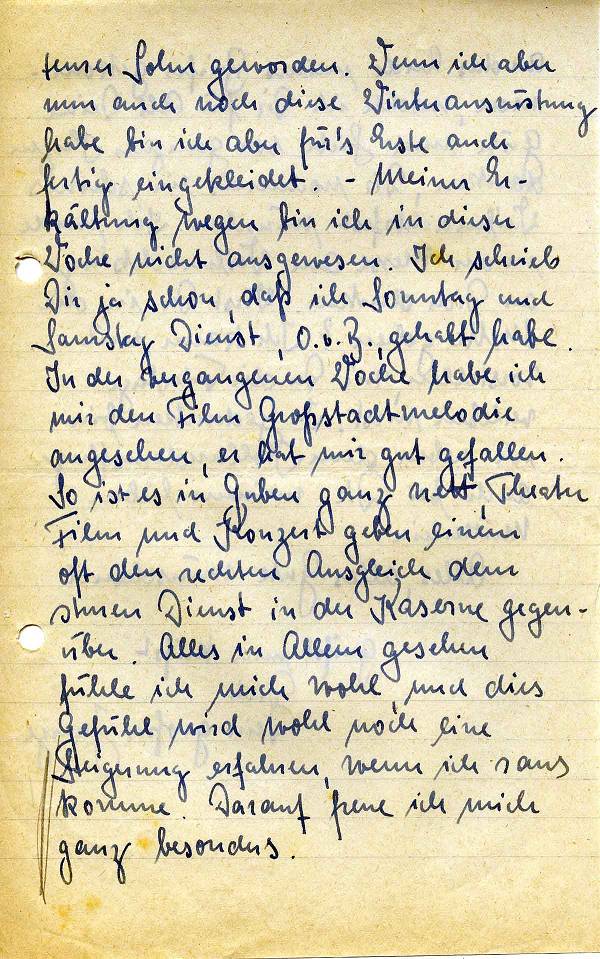 teurer Sohn geworden. Wenn ich aber
nun auch noch diese Winterausrüstung
habe bin ich aber für's Erste auch
fertig eingekleidet. - Meiner Er-
kältung wegen bin ich in dieser
Woche nicht ausgewesen. Ich schrieb
Dir ja schon, daß ich Sonntag und
Samstag Dienst, O.v.Z., gehabt habe.
In der vergangenen Woche habe ich
mir den Film Großstadtmelodie
angesehen, er hat mir gut gefallen.
So ist es in Guben ganz nett, Theater
Film und Konzert geben einem
oft den rechten Ausgleich dem
sturen Dienst in der Kaserne gegen-
über. Alles in Allem gesehen
fühle ich mich wohl, und dies
Gefühl wird wohl noch eine
Steigerung erfahren, wenn ich raus
komme. Darauf freue ich mich
ganz besonders.